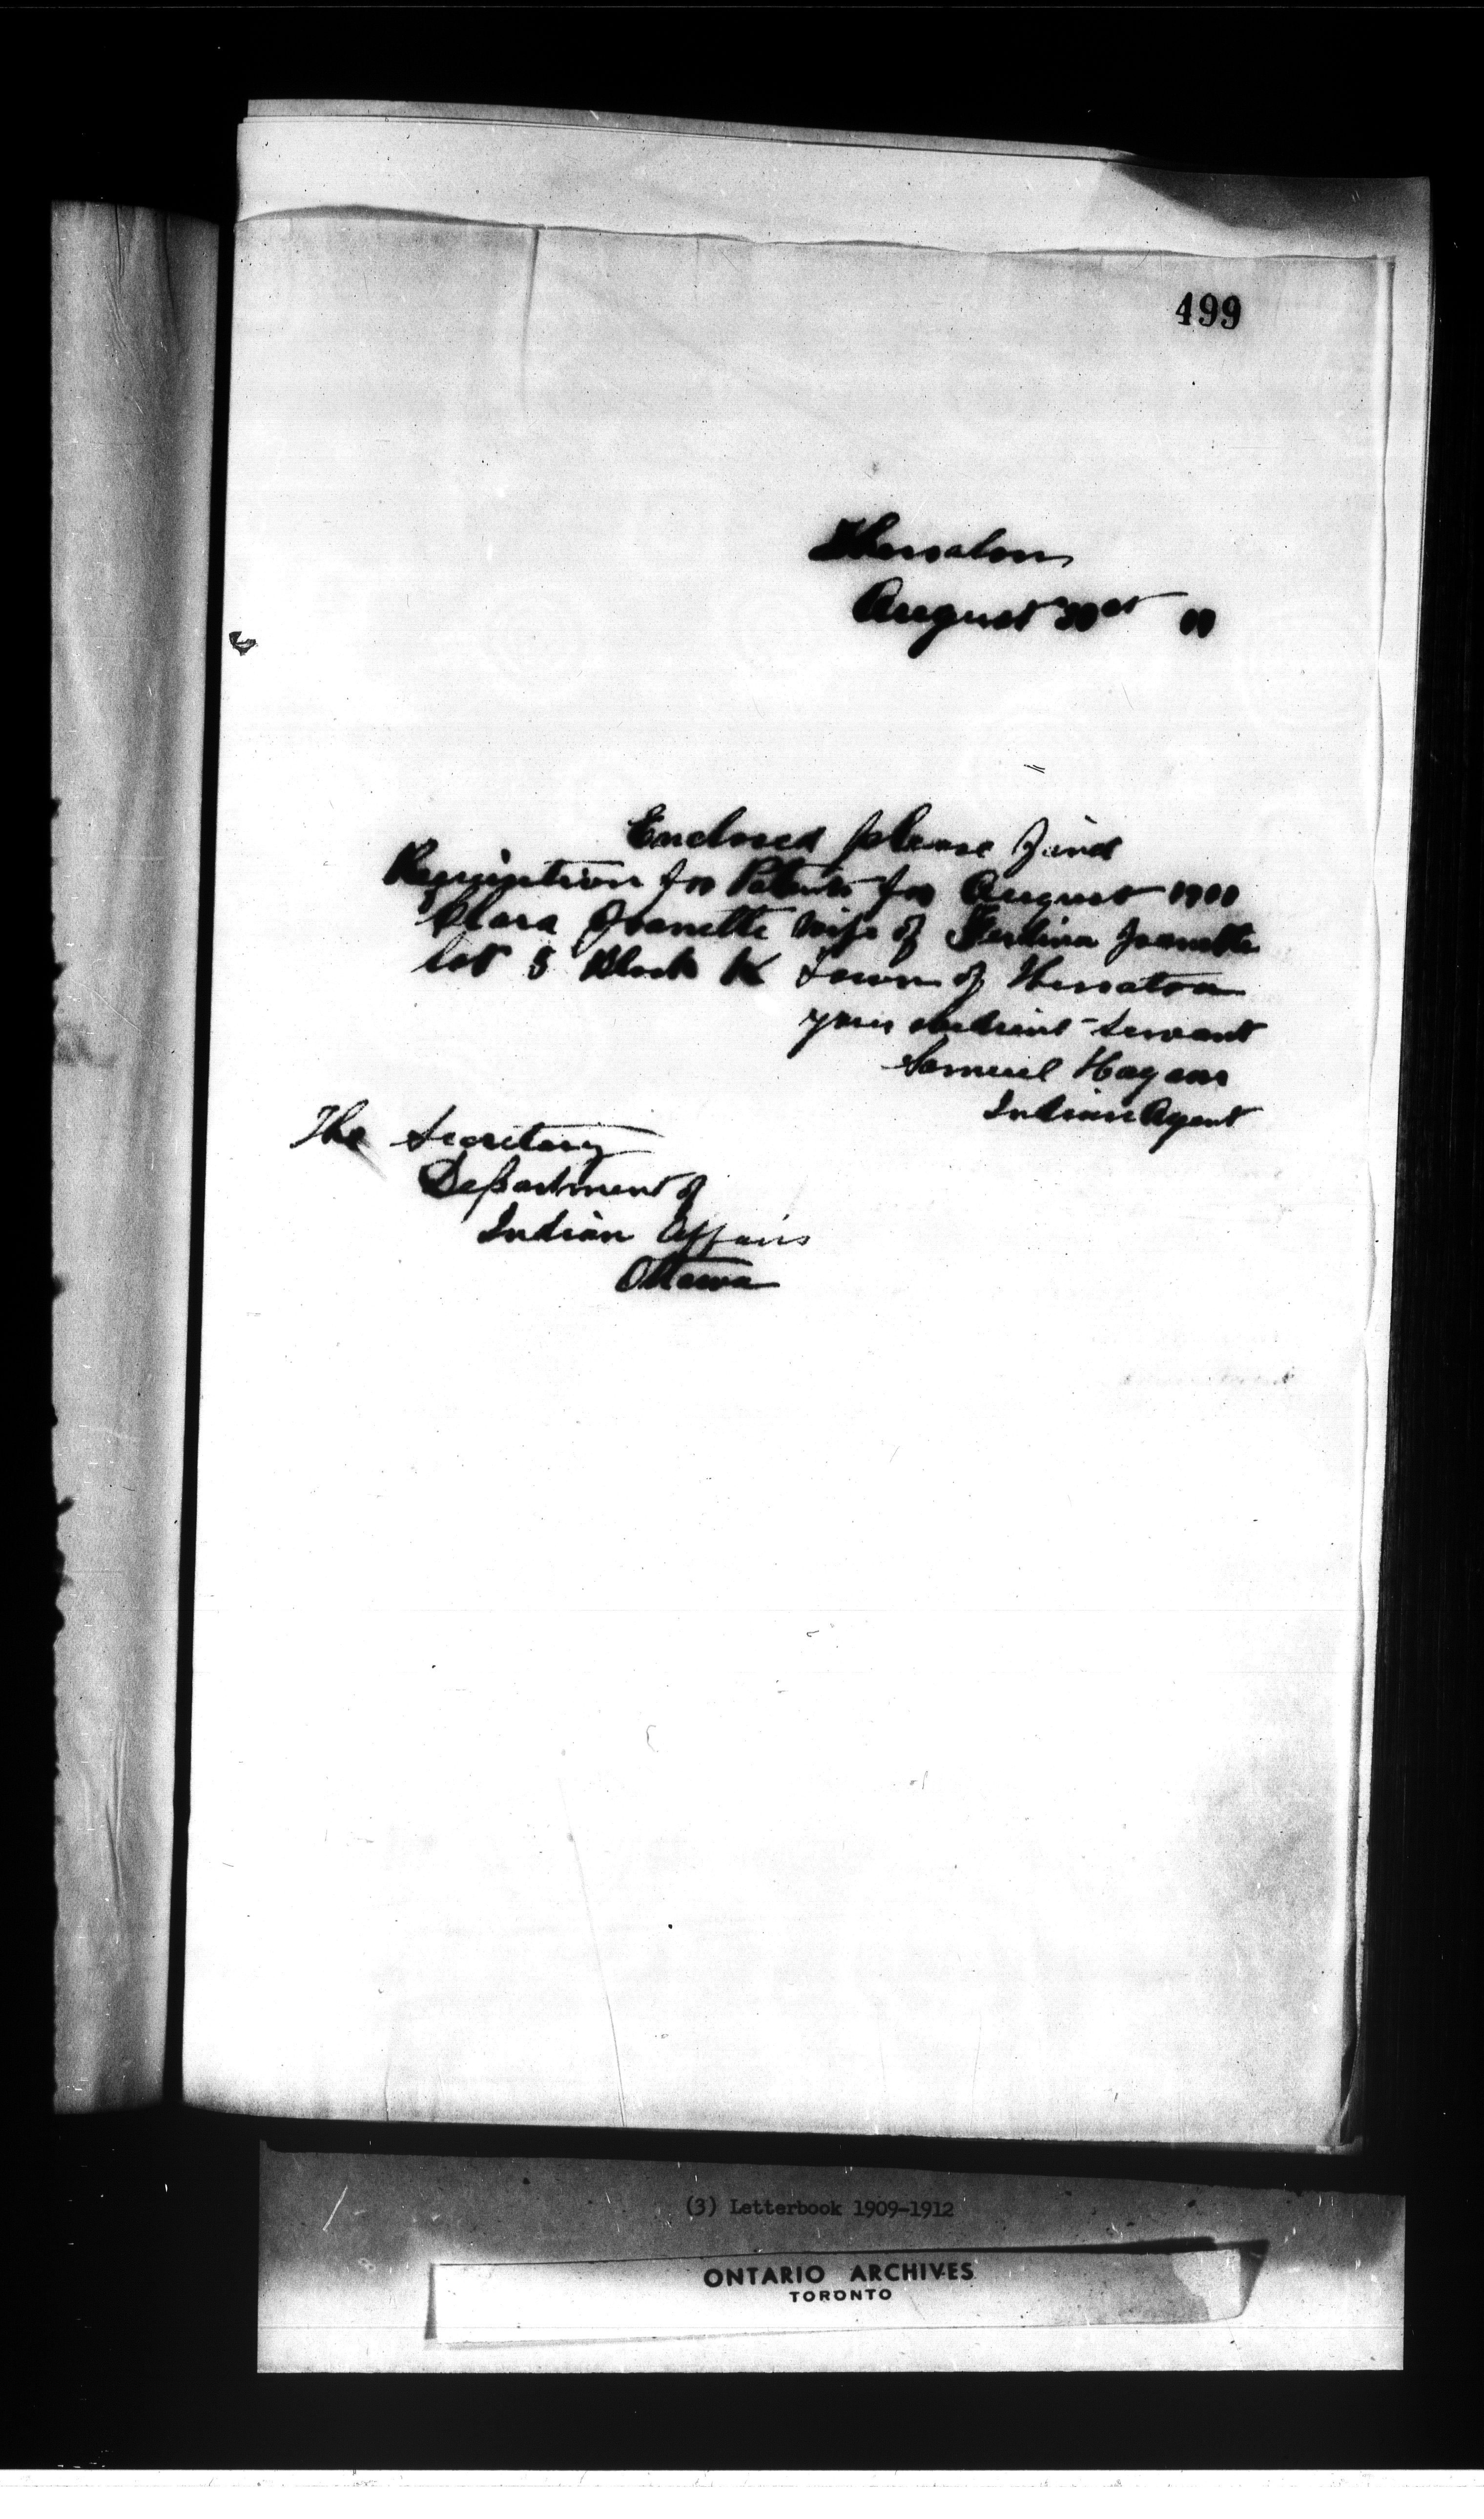 499
Thessalon
August 11
Enclosed please find
Requisition for Patents for August 1911
Clara Jeanette wife of Jeanette
lot 5 Block K town of Thessalon
your obedient servant
Samuel Hagans
Indian Agent
The Secretary
Department of
Indian Affairs
Ottawa
(3) Letterbook 1909-1912
ONTARIO ARCHIVES
TORONTO